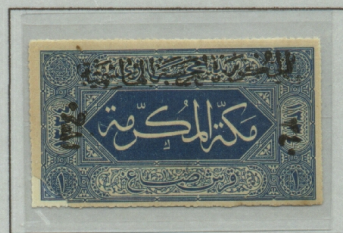 الحكومة العربية الهاشمية
١٣٤٠ ١٣٤٠
مكّة المكرّمة
١ قرش صاغ ١